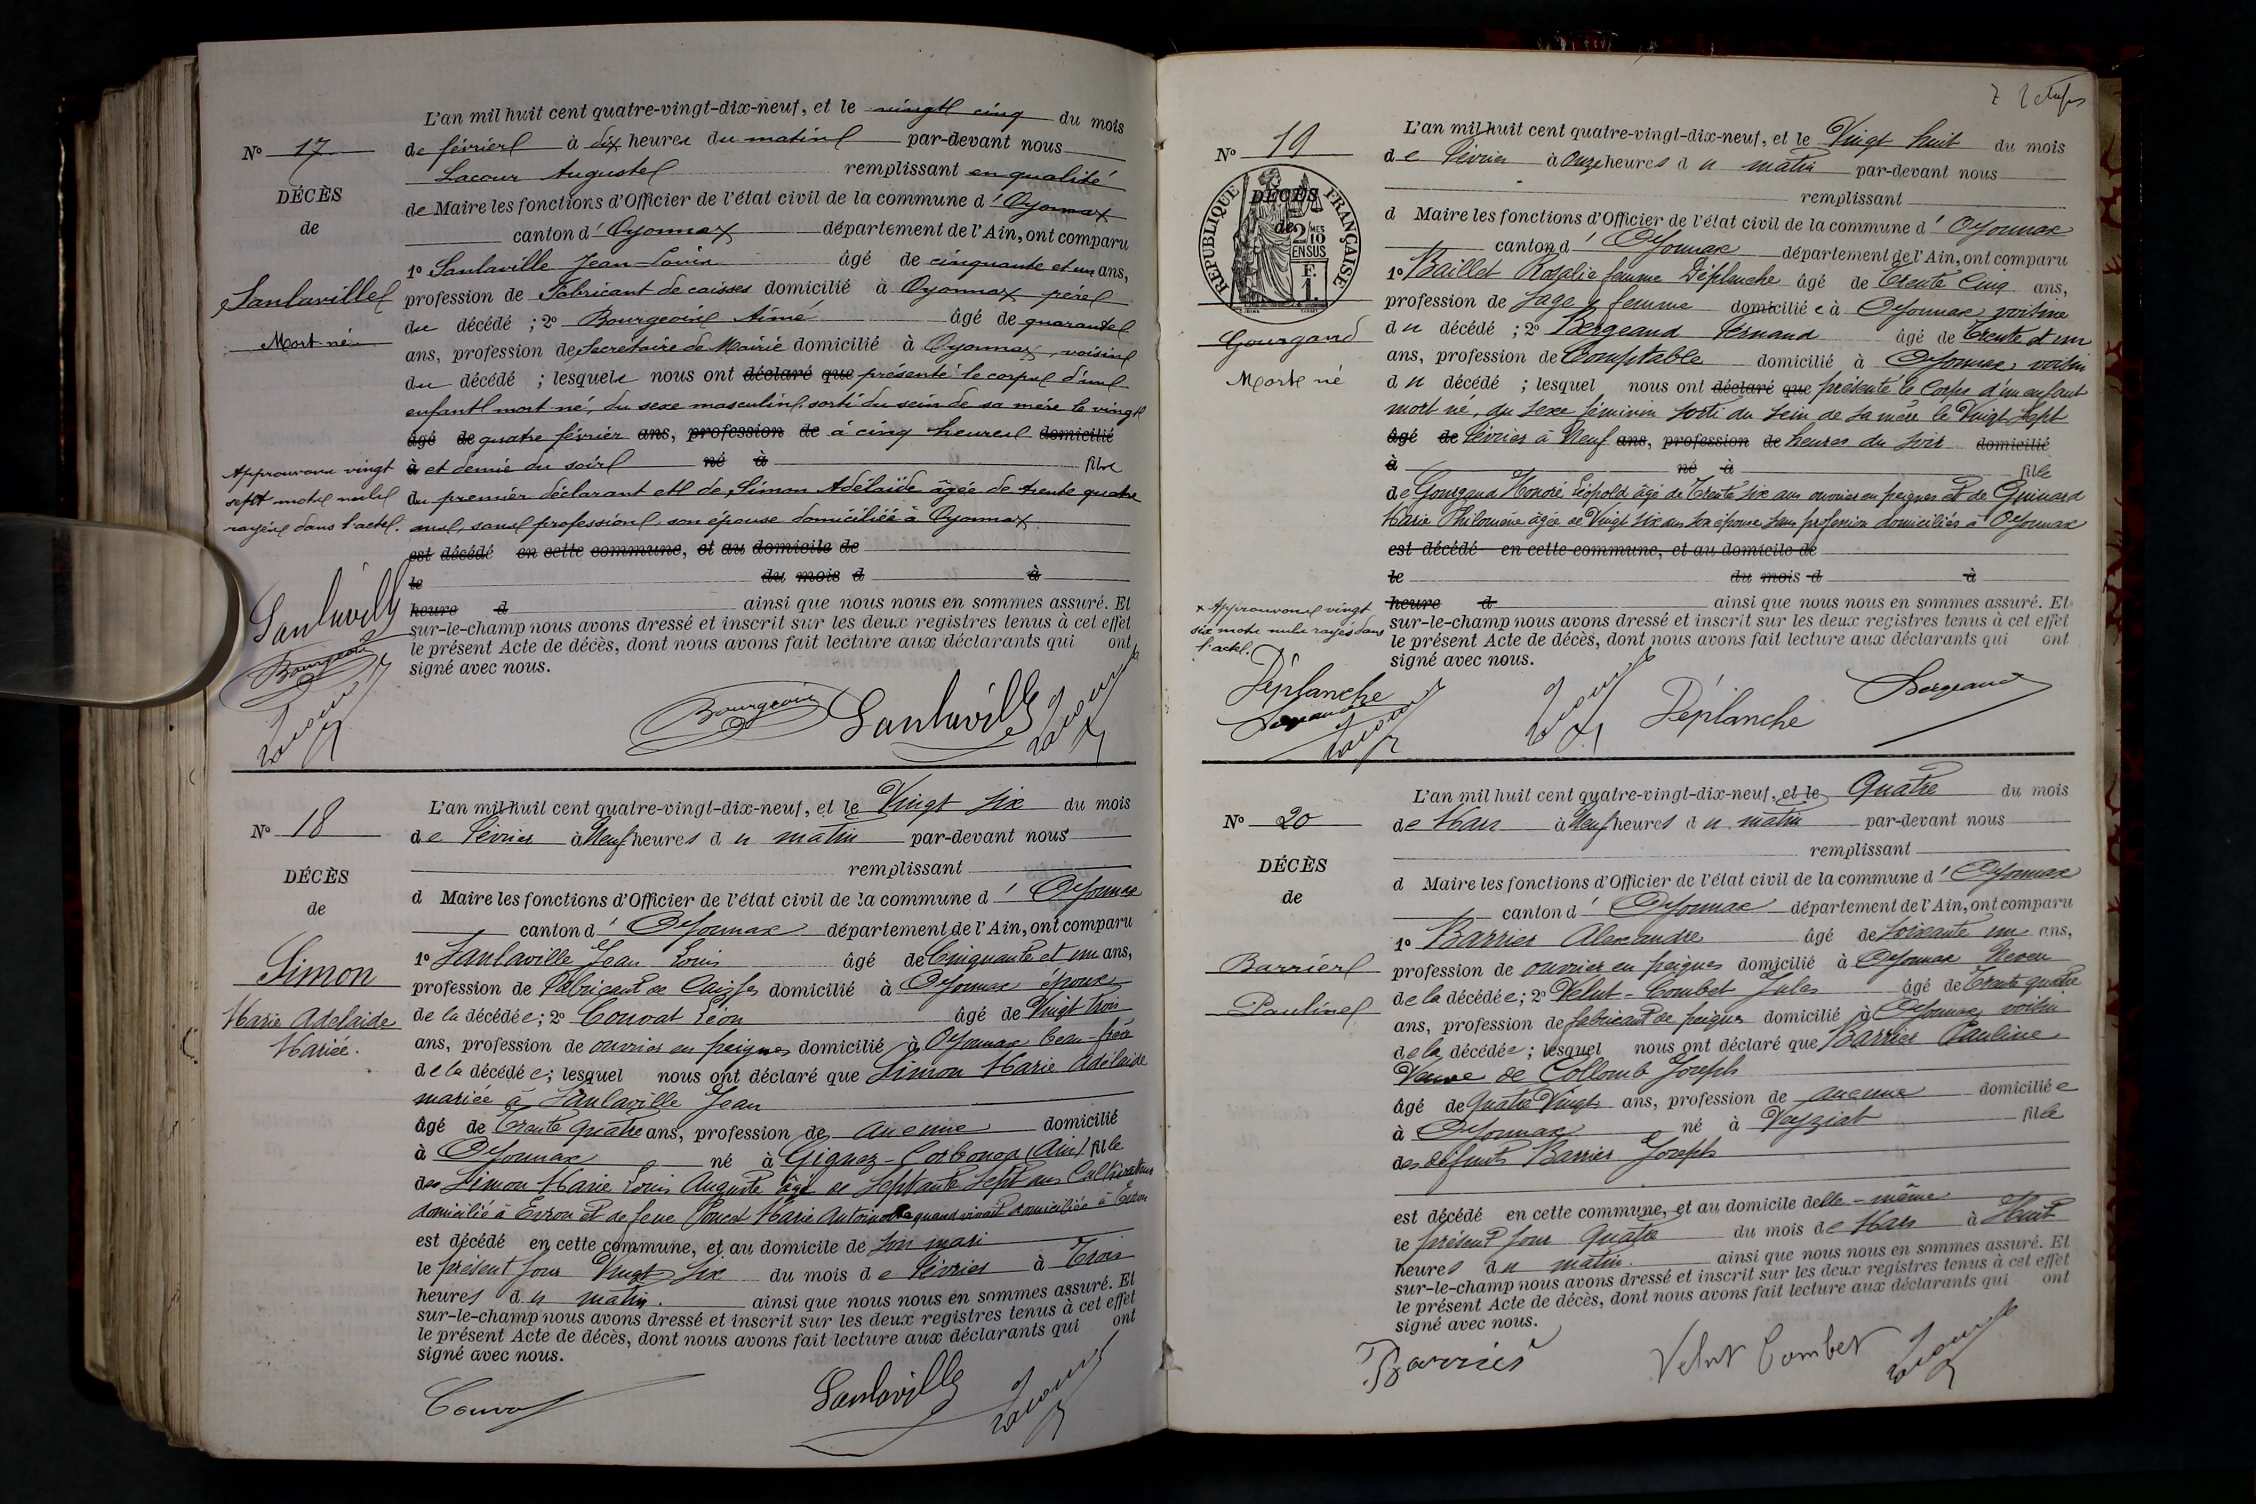 L'an mil huit cent quatre-vingt-dix-neuf, et le vingt cinq du mois
de février à dix heures du matin par-devant nous
Lacour Auguste remplissant en qualité
de Maire les fonctions d'Officier de l'état civil de la commune d'Oyonnax
canton d'Oyonnax département de l'Ain, ont comparu
1º Sanlaville Jean-Louis âgé de cinquante et un ans,
profession de Fabricant de caisses domicilié à Oyonnax père
du décédé ; 2º Bourgeois Aimé âgé de quarante
ans, profession de Secrétaire de Mairie domicilié à Oyonnax, voisin
du décédé ; lesquels nous ont déclaré que présenté le corps d'un
enfant mort né, du sexe masculin, sorti du sein de sa mère le vingt
âgé de quatre février ans, profession de à cinq heures domicilié
à et demie du soir né à fils
du premier déclarant et de Simon Adélaïde âgée de trente quatre
ans, sans profession son épouse domiciliée à Oyonnax.
est décédé en cette commune, et au domicile de
le du mois d à
heure d ainsi que nous nous en sommes assuré. Et
sur-le-champ nous avons dressé et inscrit sur les deux registres tenus à cet effet
le présent Acte de décès, dont nous avons fait lecture aux déclarants qui ont
signé avec nous.
Nº 17
DÉCÈS
de
Sanlaville
Mort né
Approuvons vingt
sept mots nuls
rayés dans l'acte.
Sanlaville
Bourgeois
Lacour
Bourgeois Sanlaville Lacour
L'an mil huit cent quatre-vingt-dix-neuf, et le Vingt six du mois
de Février à Neuf heures du matin par-devant nous
remplissant
d Maire les fonctions d'Officier de l'état civil de la commune d'Oyonnax
canton d'Oyonnax département de l'Ain, ont comparu
1º Sanlaville Jean Louis âgé de Cinquante et un ans,
profession de Fabricant de Caisses domicilié à Oyonnax époux
de la décédée ; 2º Convat Léon âgé de Vingt trois
ans, profession de ouvrier en peignes domicilié à Oyonnax beau-frère
de la décédée ; lesquel nous ont déclaré que Simon Marie Adélaïde
mariée à Sanlaville Jean
âgé de Trente quatre ans, profession de aucune domicilié
à Oyonnax né à Gignez-Corbonod (Ain) fille
des Simon Marie Louis Auguste âgé de Septante Sept ans Cultivateur
domicilié à Evron et de feue Poncet Marie Antoinette quand vivait domiciliée à
est décédé en cette commune, et au domicile de son mari
le présent jour Vingt six du mois de Février à Trois
heures du matin. ainsi que nous nous en sommes assuré. Et
sur-le-champ nous avons dressé et inscrit sur les deux registres tenus à cet effet
le présent Acte de décès, dont nous avons fait lecture aux déclarants qui ont
signé avec nous.
Nº 18
DÉCÈS
de
Simon
Marie Adelaide
Mariée.
Convat Sanlaville Lacour
L'an mil huit cent quatre-vingt-dix-neuf, et le Vingt huit du mois
de Février à Onze heures du matin par-devant nous
remplissant
d Maire les fonctions d'Officier de l'état civil de la commune d'Oyonnax
canton d'Oyonnax département de l'Ain, ont comparu
1º Baillet Rosalie femme Déplanche âgé de Trente Cinq ans,
profession de sage femme domiciliée à Oyonnax voisine
du décédé ; 2º Bergeand Fernand âgé de Trente et un
ans, profession de Comptable domicilié à Oyonnax, voisin
du décédé ; lesquel nous ont déclaré que présenté le Corps d'un enfant
mort né, du sexe féminin sorti du sein de sa mère le Vingt Sept
âgé de Février à Neuf ans, profession de heures du soir domicilié
à né à fille
de Gourgand Honoré Léopold âgé de Trente six ans ouvrier en peignes et de Guinard
Marie Philomène âgée de Vingt six ans son épouse sans profession domiciliés à Oyonnax
est décédé en cette commune, et au domicile de
le du mois d à
heure d ainsi que nous nous en sommes assuré. Et
sur-le-champ nous avons dressé et inscrit sur les deux registres tenus à cet effet
le présent Acte de décès, dont nous avons fait lecture aux déclarants qui ont
signé avec nous.
Nº 19
RÉPUBLIQUE FRANÇAISE
DÉCÈS
de
2 MES 10 EN SUS
F. 1.
Gourgand
Mort né
x Approuvons vingt
six mots nuls rayés dans
l'acte.
Déplanche
Bergeand
Lacour
Lacour Déplanche Bergeand
L'an mil huit cent quatre-vingt-dix-neuf, et le Quatre du mois
de Mars à Neuf heures du matin par-devant nous
remplissant
d Maire les fonctions d'Officier de l'état civil de la commune d'Oyonnax
canton d'Oyonnax département de l'Ain, ont comparu
1º Barrier Alexandre âgé de soixante un ans,
profession de ouvrier en peignes domicilié à Oyonnax Neveu
de la décédée ; 2º Velut-Combet Jules âgé de Trente quatre
ans, profession de fabricant de peignes domicilié à Oyonnax voisin
de la décédée ; lesquel nous ont déclaré que Barrier Pauline
Veuve de Collomb Joseph
âgé de Quatre Vingts ans, profession de aucune domiciliée
à Oyonnax né à Veyziat fille
des défunts Barrier Joseph
est décédé en cette commune, et au domicile delle-même
le présent jour Quatre du mois de Mars à Huit
heures du matin. ainsi que nous nous en sommes assuré. Et
sur-le-champ nous avons dressé et inscrit sur les deux registres tenus à cet effet
le présent Acte de décès, dont nous avons fait lecture aux déclarants qui ont
signé avec nous.
Nº 20
DÉCÈS
de
Barrier
Pauline
Barrier Velut Combet Lacour